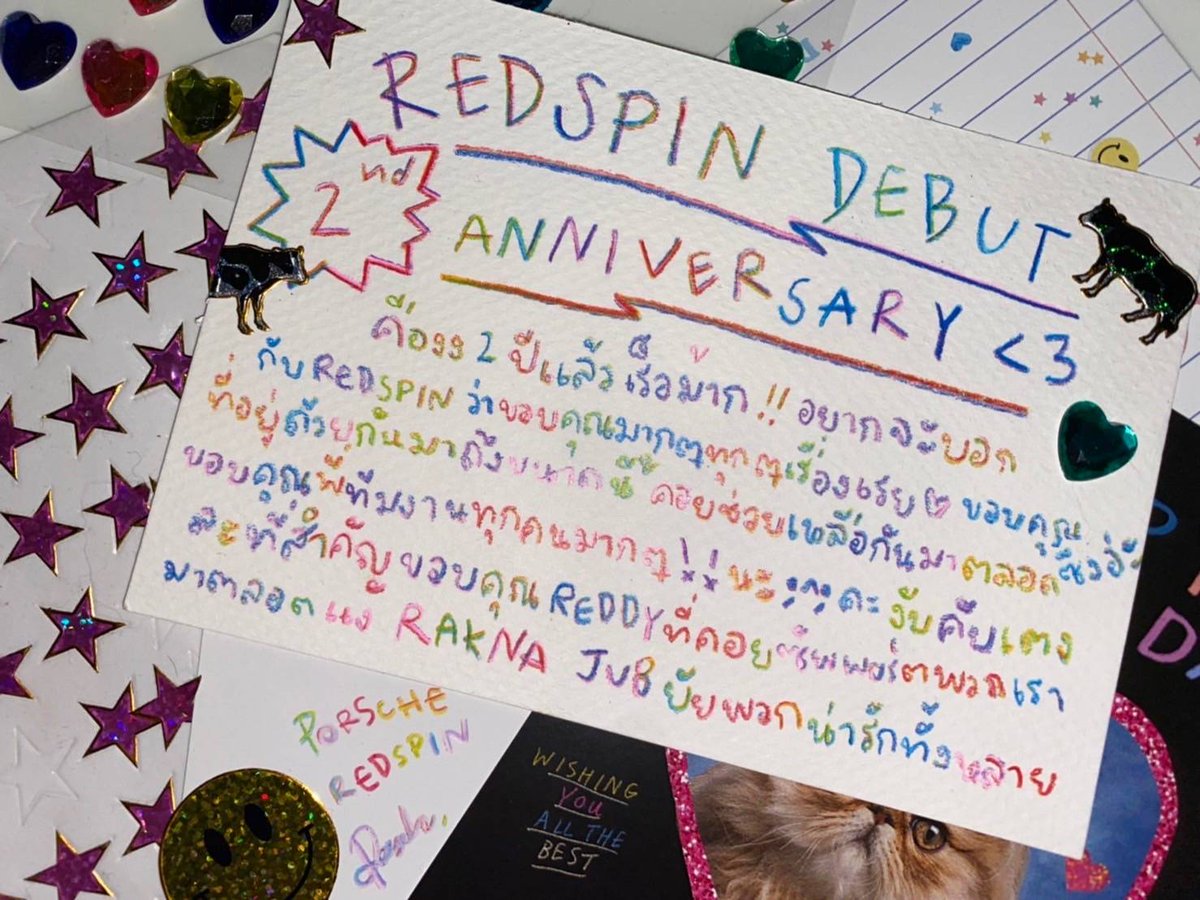 REDSPIN DEBUT
2nd
ANNIVERSARY <3
คืองง 2 ปีแล้ว เร็วมาก !! อยากจะบอก
กับ REDSPIN ว่าขอบคุณมากๆทุกๆเรื่องเรย ขอบคุณ
ที่อยู่ด้วยกันมาถึงขนาดนี้ คอยช่วยเหลือกันมาตลอด
ขอบคุณพี่ทีมงานทุกคนมากๆ!! นะ คะ งับ คับ เตง
และที่สำคัญ ขอบคุณ REDDY ที่คอยซัพพอร์ตพวกเรา
มาตลอด RAKNA JUB ยัยพวกน่ารักทั้งหลาย
PORSCHE
REDSPIN
WISHING
YOU
ALL THE
BEST